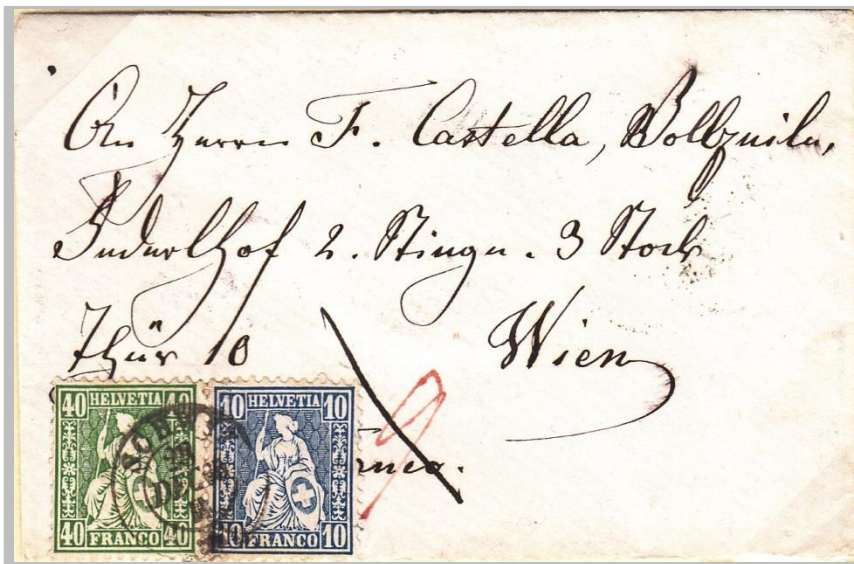 An Herrn F. Castella, Wollzeile,
Federlhof 2. Stiege. 3 Stock
Thür 10 Wien
40 HELVETIA 40 10 HELVETIA 10
40 FRANCO 40 10 FRANCO 10